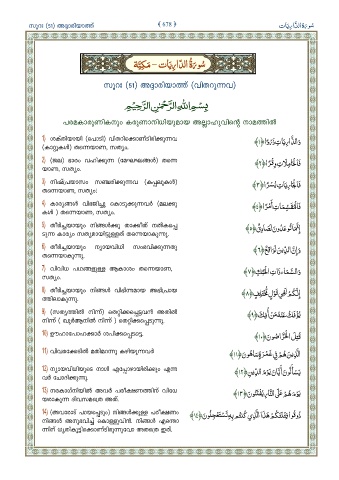 സൂറഃ (51) അദ്ദാരിയാത്ത്
﴾ 678 ﴿
سُورَةُ الذَّارِيَات
سُورَةُ الذَّارِيَات – مَكِّيَّة
സൂറഃ (51) അദ്ദാരിയാത്ത് (വിതറുന്നവ)
بِسْمِ اللهِ الرَّحْمٰنِ الرَّحِيْمِ
പരമകാരുണികനും കരുണാനിധിയുമായ അല്ലാഹുവിന്റെ നാമത്തിൽ
1) ശക്തിയായി (പൊടി) വിതറിക്കൊണ്ടിരിക്കുന്നവ
(കാറ്റുകൾ) തന്നെയാണ, സത്യം.
وَالذَّارِيَاتِ ذَرْوًا ﴿١﴾
2) (ജല) ഭാരം വഹിക്കുന്ന (മേഘങ്ങൾ) തന്നെ
യാണ, സത്യം.
فَالْحَامِلَاتِ وِقْرًا ﴿٢﴾
3) നിഷ്പ്രയാസം സഞ്ചരിക്കുന്നവ (കപ്പലുകൾ)
തന്നെയാണ, സത്യം;
فَالْجَارِيَاتِ يُسْرًا ﴿٣﴾
4) കാര്യങ്ങൾ വിഭജിച്ചു കൊടുക്കുന്നവർ (മലക്കു
കൾ ) തന്നെയാണ, സത്യം.
فَالْمُقَسِّمَاتِ أَمْرًا ﴿٤﴾
5) തീർച്ചയായും നിങ്ങൾക്കു താക്കീത് നൽകപ്പെ
ടുന്ന കാര്യം സത്യമായിട്ടുള്ളത് തന്നെയാകുന്നു.
إِنَّمَا تُوعَدُونَ لَصَادِقٌ ﴿٥﴾
6) തീർച്ചയായും ന്യായവിധി സംഭവിക്കുന്നതു
തന്നെയാകുന്നു.
وَإِنَّ الدِّينَ لَوَاقِعٌ ﴿٦﴾
7) വിവിധ പഥങ്ങളുള്ള ആകാശം തന്നെയാണ,
സത്യം.
وَالسَّمَاءِ ذَاتِ الْحُبُكِ ﴿٧﴾
8) തീർച്ചയായും നിങ്ങൾ വിഭിന്നമായ അഭിപ്രായ
ത്തിലാകുന്നു.
إِنَّكُمْ لَفِي قَوْلٍ مُّخْتَلِفٍ ﴿٨﴾
9) (സത്യത്തിൽ നിന്ന്) തെറ്റിക്കപ്പെട്ടവൻ അതിൽ
നിന്ന് ( ഖുർആനിൽ നിന്ന് ) തെറ്റിക്കപ്പെടുന്നു.
يُؤْفَكُ عَنْهُ مَنْ أُفِكَ ﴿٩﴾
10) ഊഹാപോഹക്കാർ ശപിക്കപ്പെടട്ടെ.
قُتِلَ الْخَرَّاصُونَ ﴿١٠﴾
11) വിവരക്കേടിൽ മതിമറന്നു കഴിയുന്നവർ
الَّذِينَ هُمْ فِي غَمْرَةٍ سَاهُونَ ﴿١١﴾
12) ന്യായവിധിയുടെ നാൾ എപ്പോഴായിരിക്കും എന്ന
വർ ചോദിക്കുന്നു.
يَسْأَلُونَ أَيَّانَ يَوْمُ الدِّينِ ﴿١٢﴾
13) നരകാഗ്നിയിൽ അവർ പരീക്ഷണത്തിന് വിധേ
യരാകുന്ന ദിവസമത്രെ അത്.
يَوْمَ هُمْ عَلَى النَّارِ يُفْتَنُونَ ﴿١٣﴾
14) (അവരോട് പറയപ്പെടും:) നിങ്ങൾക്കുള്ള പരീക്ഷണം
നിങ്ങൾ അനുഭവിച്ച് കൊള്ളുവിൻ. നിങ്ങൾ എന്തൊ
ന്നിന് ധൃതികൂട്ടിക്കൊണ്ടിരുന്നുവോ അതത്രെ ഇത്.
ذُوقُوا فِتْنَتَكُمْ هَٰذَا الَّذِي كُنتُم بِهِ تَسْتَعْجِلُونَ ﴿١٤﴾